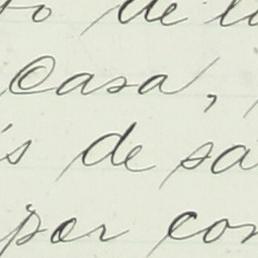 to de l
Casa,
s de sa
por con